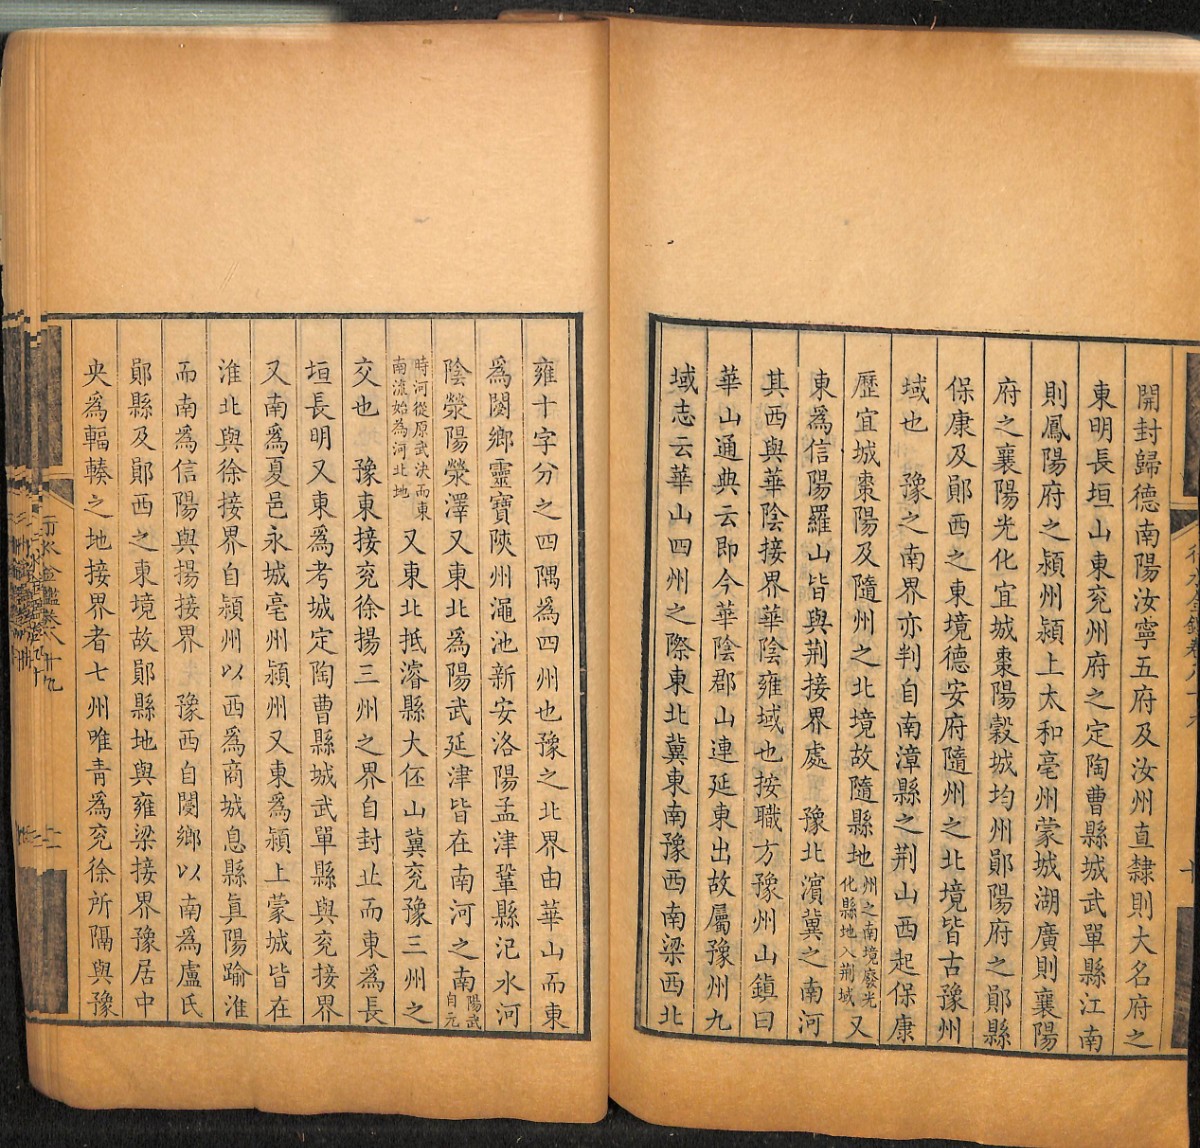 開封歸德南陽汝寧五府及汝州直隸則大名府之
東明長垣山東兖州府之定陶曹縣城武單縣江南
則鳳陽府之潁州潁上太和亳州蒙城湖廣則襄陽
府之襄陽光化宜城棗陽穀城均州鄖陽府之鄖縣
保康及鄖西之東境德安府隨州之北境皆古豫州
域也　豫之南界亦判自南漳縣之荆山西起保康
歷宜城棗陽及隨州之北境故隨縣地州之南境廢光化縣地入荆域又
東爲信陽羅山皆與荆接界處　豫北濵冀之南河
其西與華陰接界華陰雍域也按職方豫州山鎮曰
華山通典云即今華陰郡山連延東出故屬豫州九
域志云華山四州之際東北冀東南豫西南梁西北
雍十字分之四隅爲四州也豫之北界由華山而東
爲閿鄉靈寶陝州澠池新安洛陽孟津鞏縣汜水河
陰滎陽滎澤又東北爲陽武延津皆在南河之南陽武自元
時河從原武決而東南流始為河北地　又東北抵濬縣大伾山冀兖豫三州之
交也　豫東接兖徐揚三州之界自封丘而東爲長
垣長明又東爲考城定陶曹縣城武單縣與兖接界
又南爲夏邑永城亳州潁州又東爲潁上蒙城皆在
淮北與徐接界自潁州以西爲商城息縣真陽踰淮
而南爲信陽與揚接界　豫西自閿鄉以南爲盧氏
鄖縣及鄖西之東境故鄖縣地與雍梁接界豫居中
央爲輻輳之地接界者七州唯青爲兖徐所隔與豫